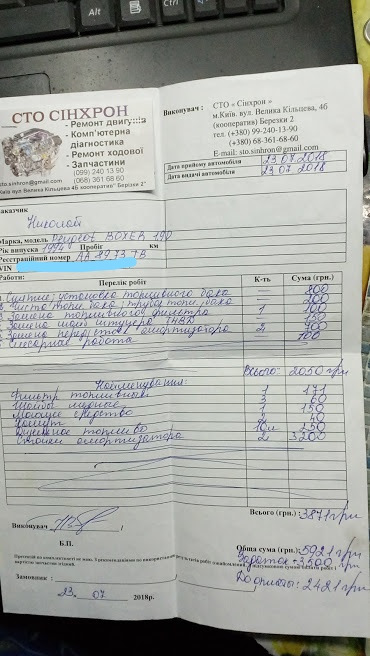 Alt
Ctrl
СТО СІНХРОН
- Ремонт двигуна
- Комп'ютерна
діагностика
- Ремонт ходової
- Запчастини
(099) 240 13 90
(068) 361 68 60
sto.sinhron@gmail.com
Київ вул Велика Кільцева 4б кооператив" Берізки 2"
Виконувач :
СТО « Сінхрон »
м.Київ. вул. Велика Кільцева, 4б
(кооператив) Березки 2
тел. (+380) 99-240-13-90
(+380) 68-361-68-60
E-mail: sto.sinhron@gmail.com
Дата прийому автомобіля 23 07 2018
Дата видачі автомобіля 23 07 2018
Замовник
Николай
Марка, модель Peugeot BOXER 190
Рік випуска 1994 Пробіг км
Реєстраційний номер АА 8973 ТВ
VIN
Работи:
Перелік робіт К-ть Сума (грн.)
Снятие, установка топливного бака
Чистка топл. бака, трубок топл. бака 200
Замена топливного фильтра 1 100
Замена шайб штуцера ТНВД 150
Замена передних амортизатора 2
Слесарная работа 100
Всього: 2050 грн
Найменування:
Фильтр топливный 1 171
Шайбы медные 3 60
Моющее средство 1 150
Хомут 2 40
Дизельное топливо 10л 250
Стойки амортизатора 2 3200
Всього (грн.) : 3871 грн
Виконувач
Б.П.
Обща сума (грн.): 5921 грн
Задаток - 3500 грн
Доплаты: 2421 грн
Замовник :
23 07 2018р.